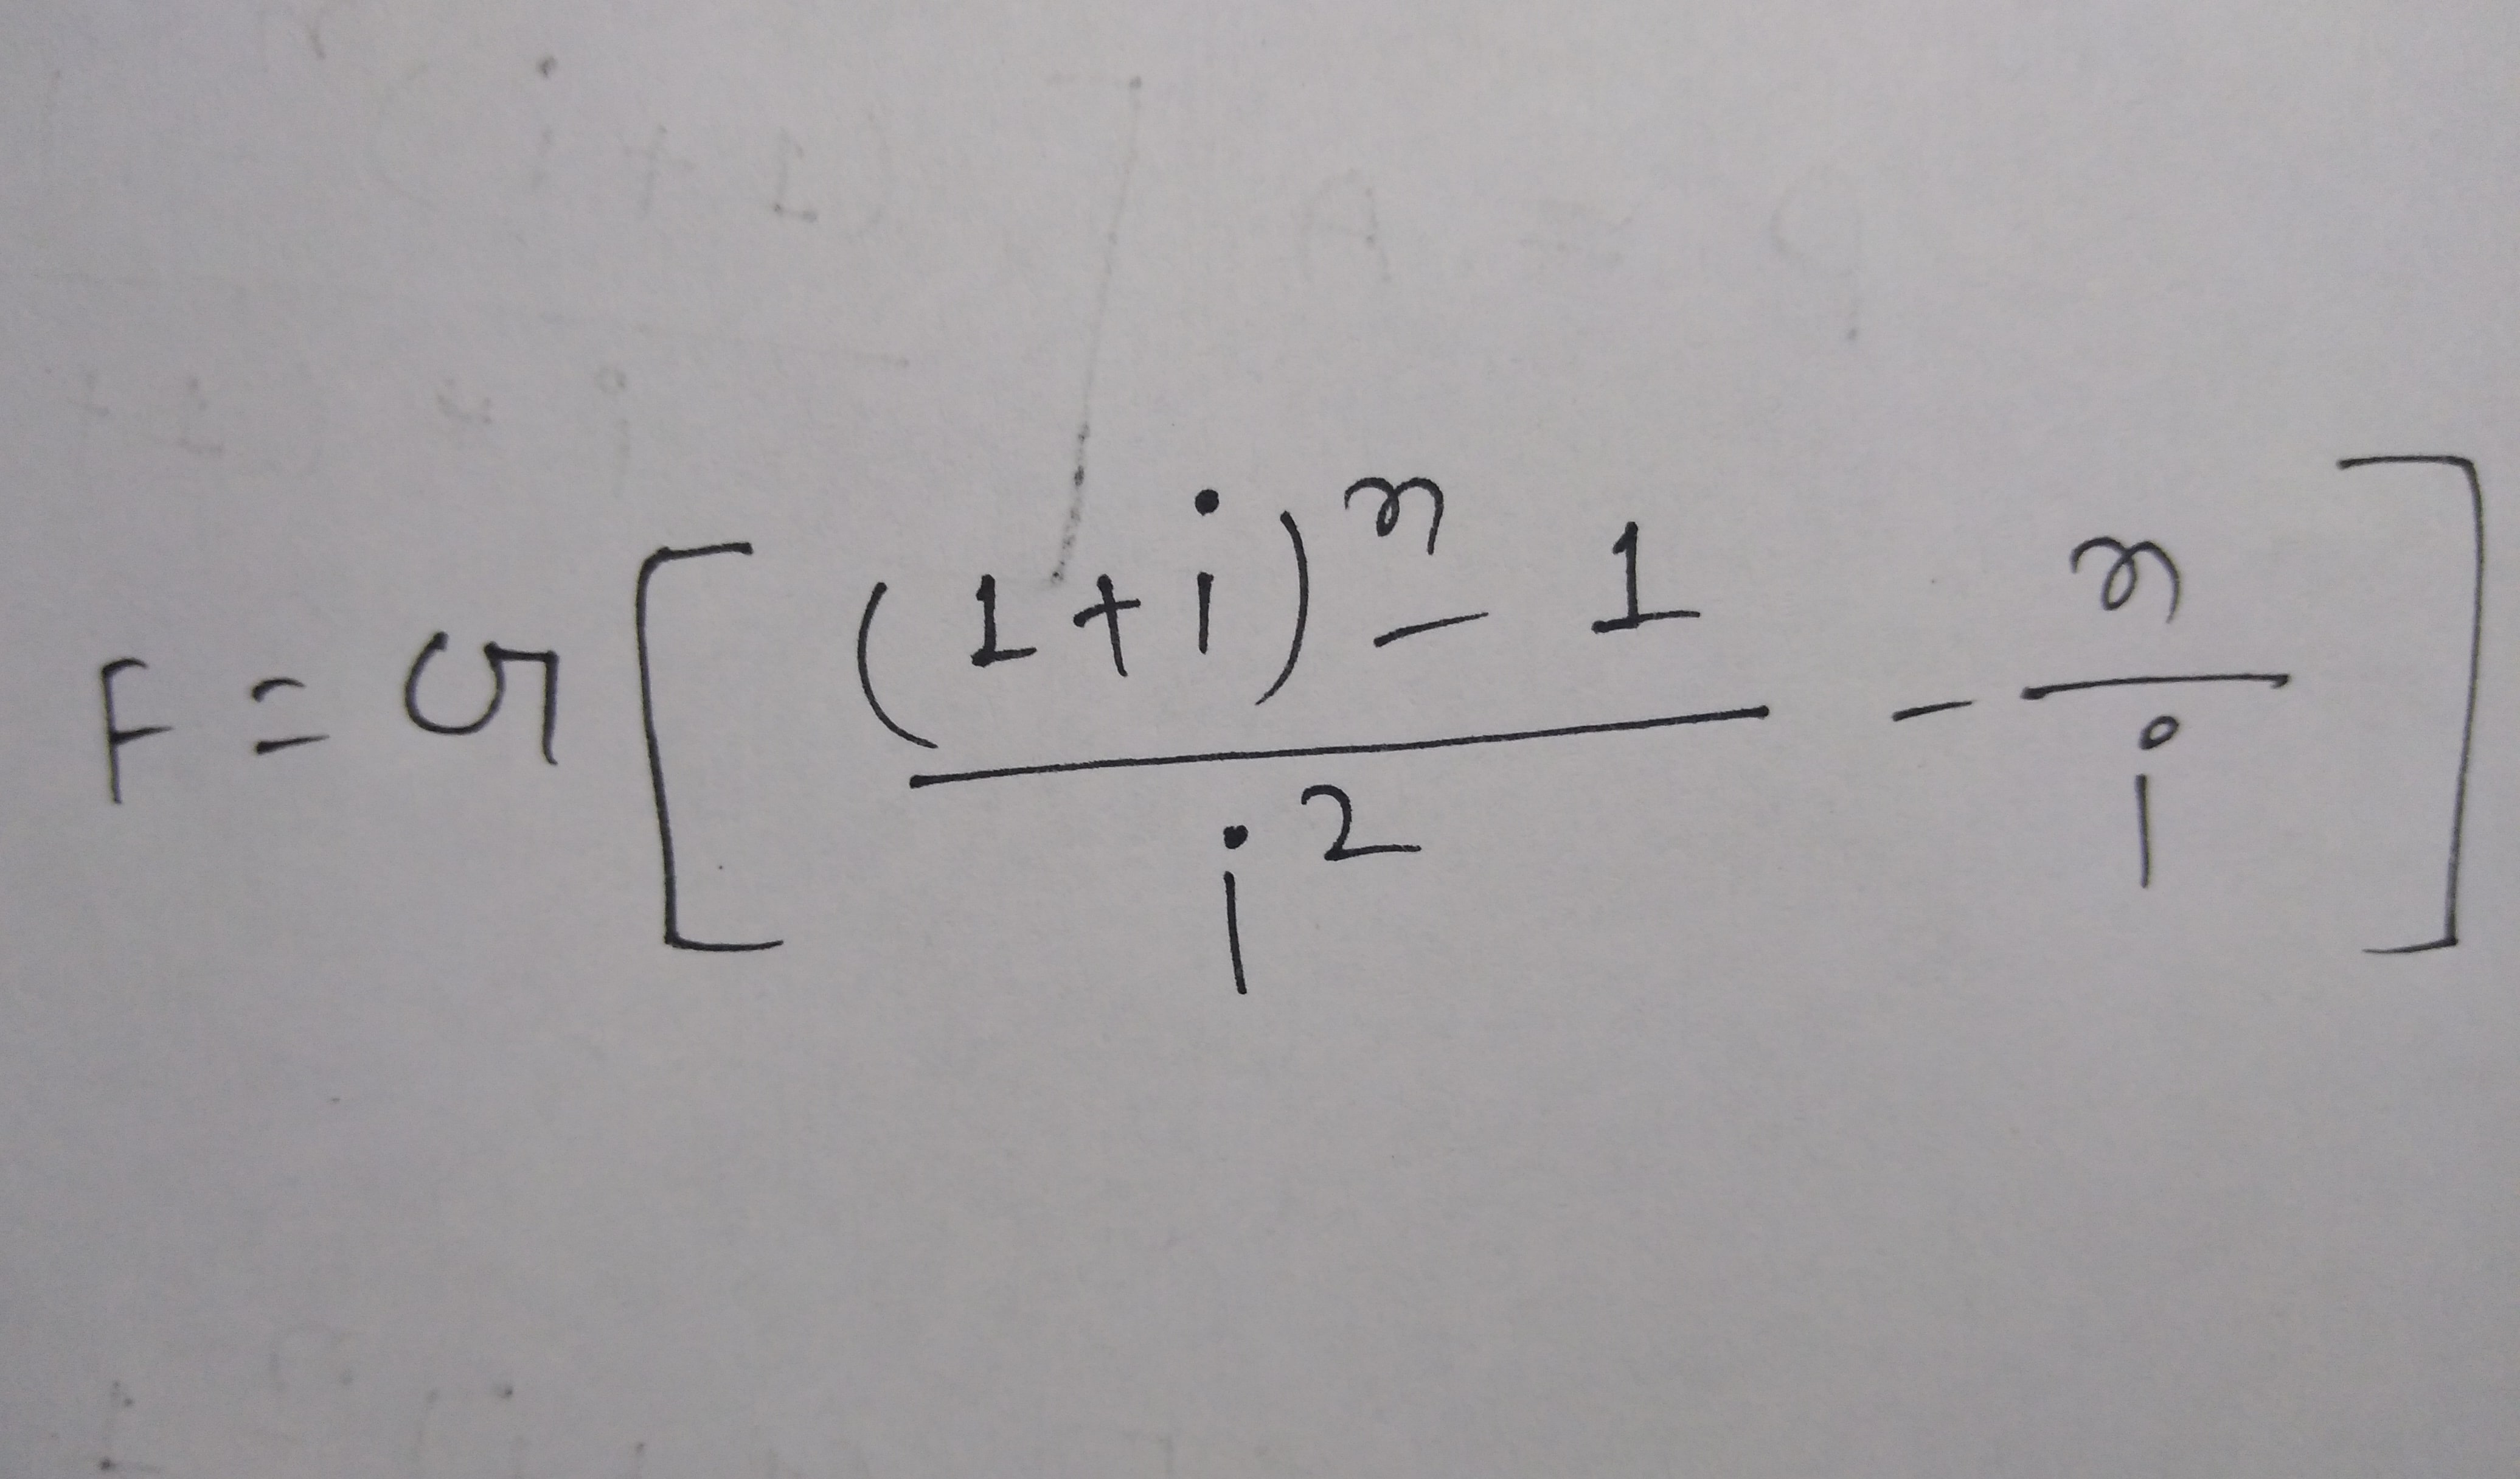 F = G [ ((1+i)^n - 1) / i^2 - n / i ]